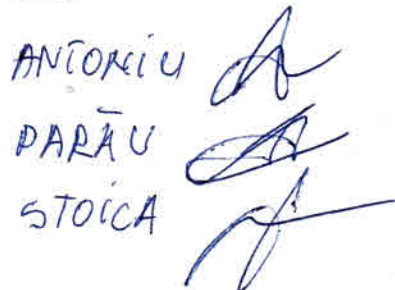 ANTONIU
PARĂU
STOICA